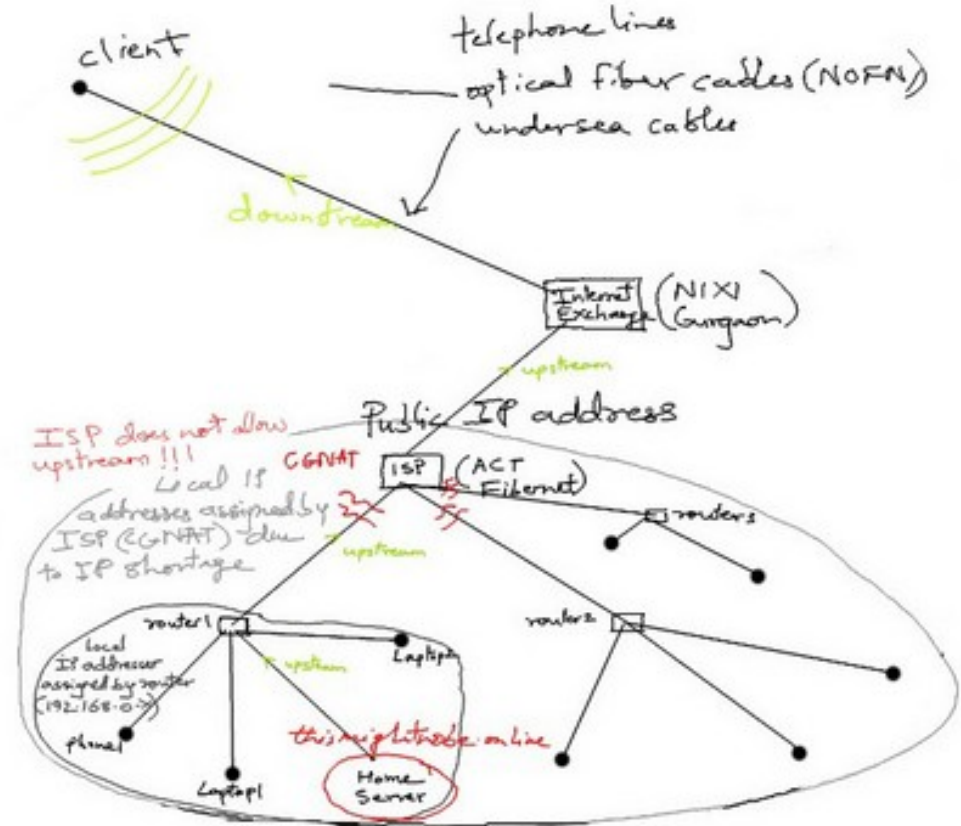 client
telephone lines
optical fiber cables (NOFN)
undersea cables
downstream
Internet
Exchange
(NIXI
Gurgaon)
upstream
Public IP address
ISP does not allow
upstream!!!
CGNAT
ISP
(ACT
Fibernet)
Local IP
addresses assigned by
ISP (CGNAT) due
to IP shortage
upstream
router3
router1
router2
Local
IP addresses
assigned by router
(192.168.0.x)
upstream
Laptop2
phone1
this might not be online
Laptop1
Home
Server